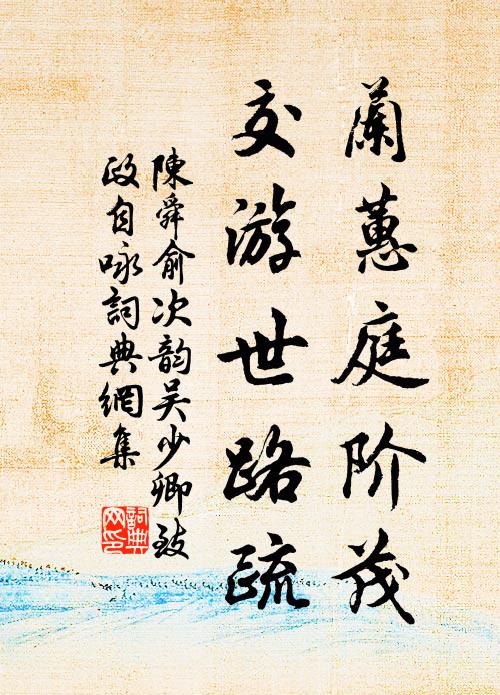 蘭蕙庭阶茂
交游世路疏
陳舜俞次韵吴少卿致
政自咏詞典網集
詞典
网印